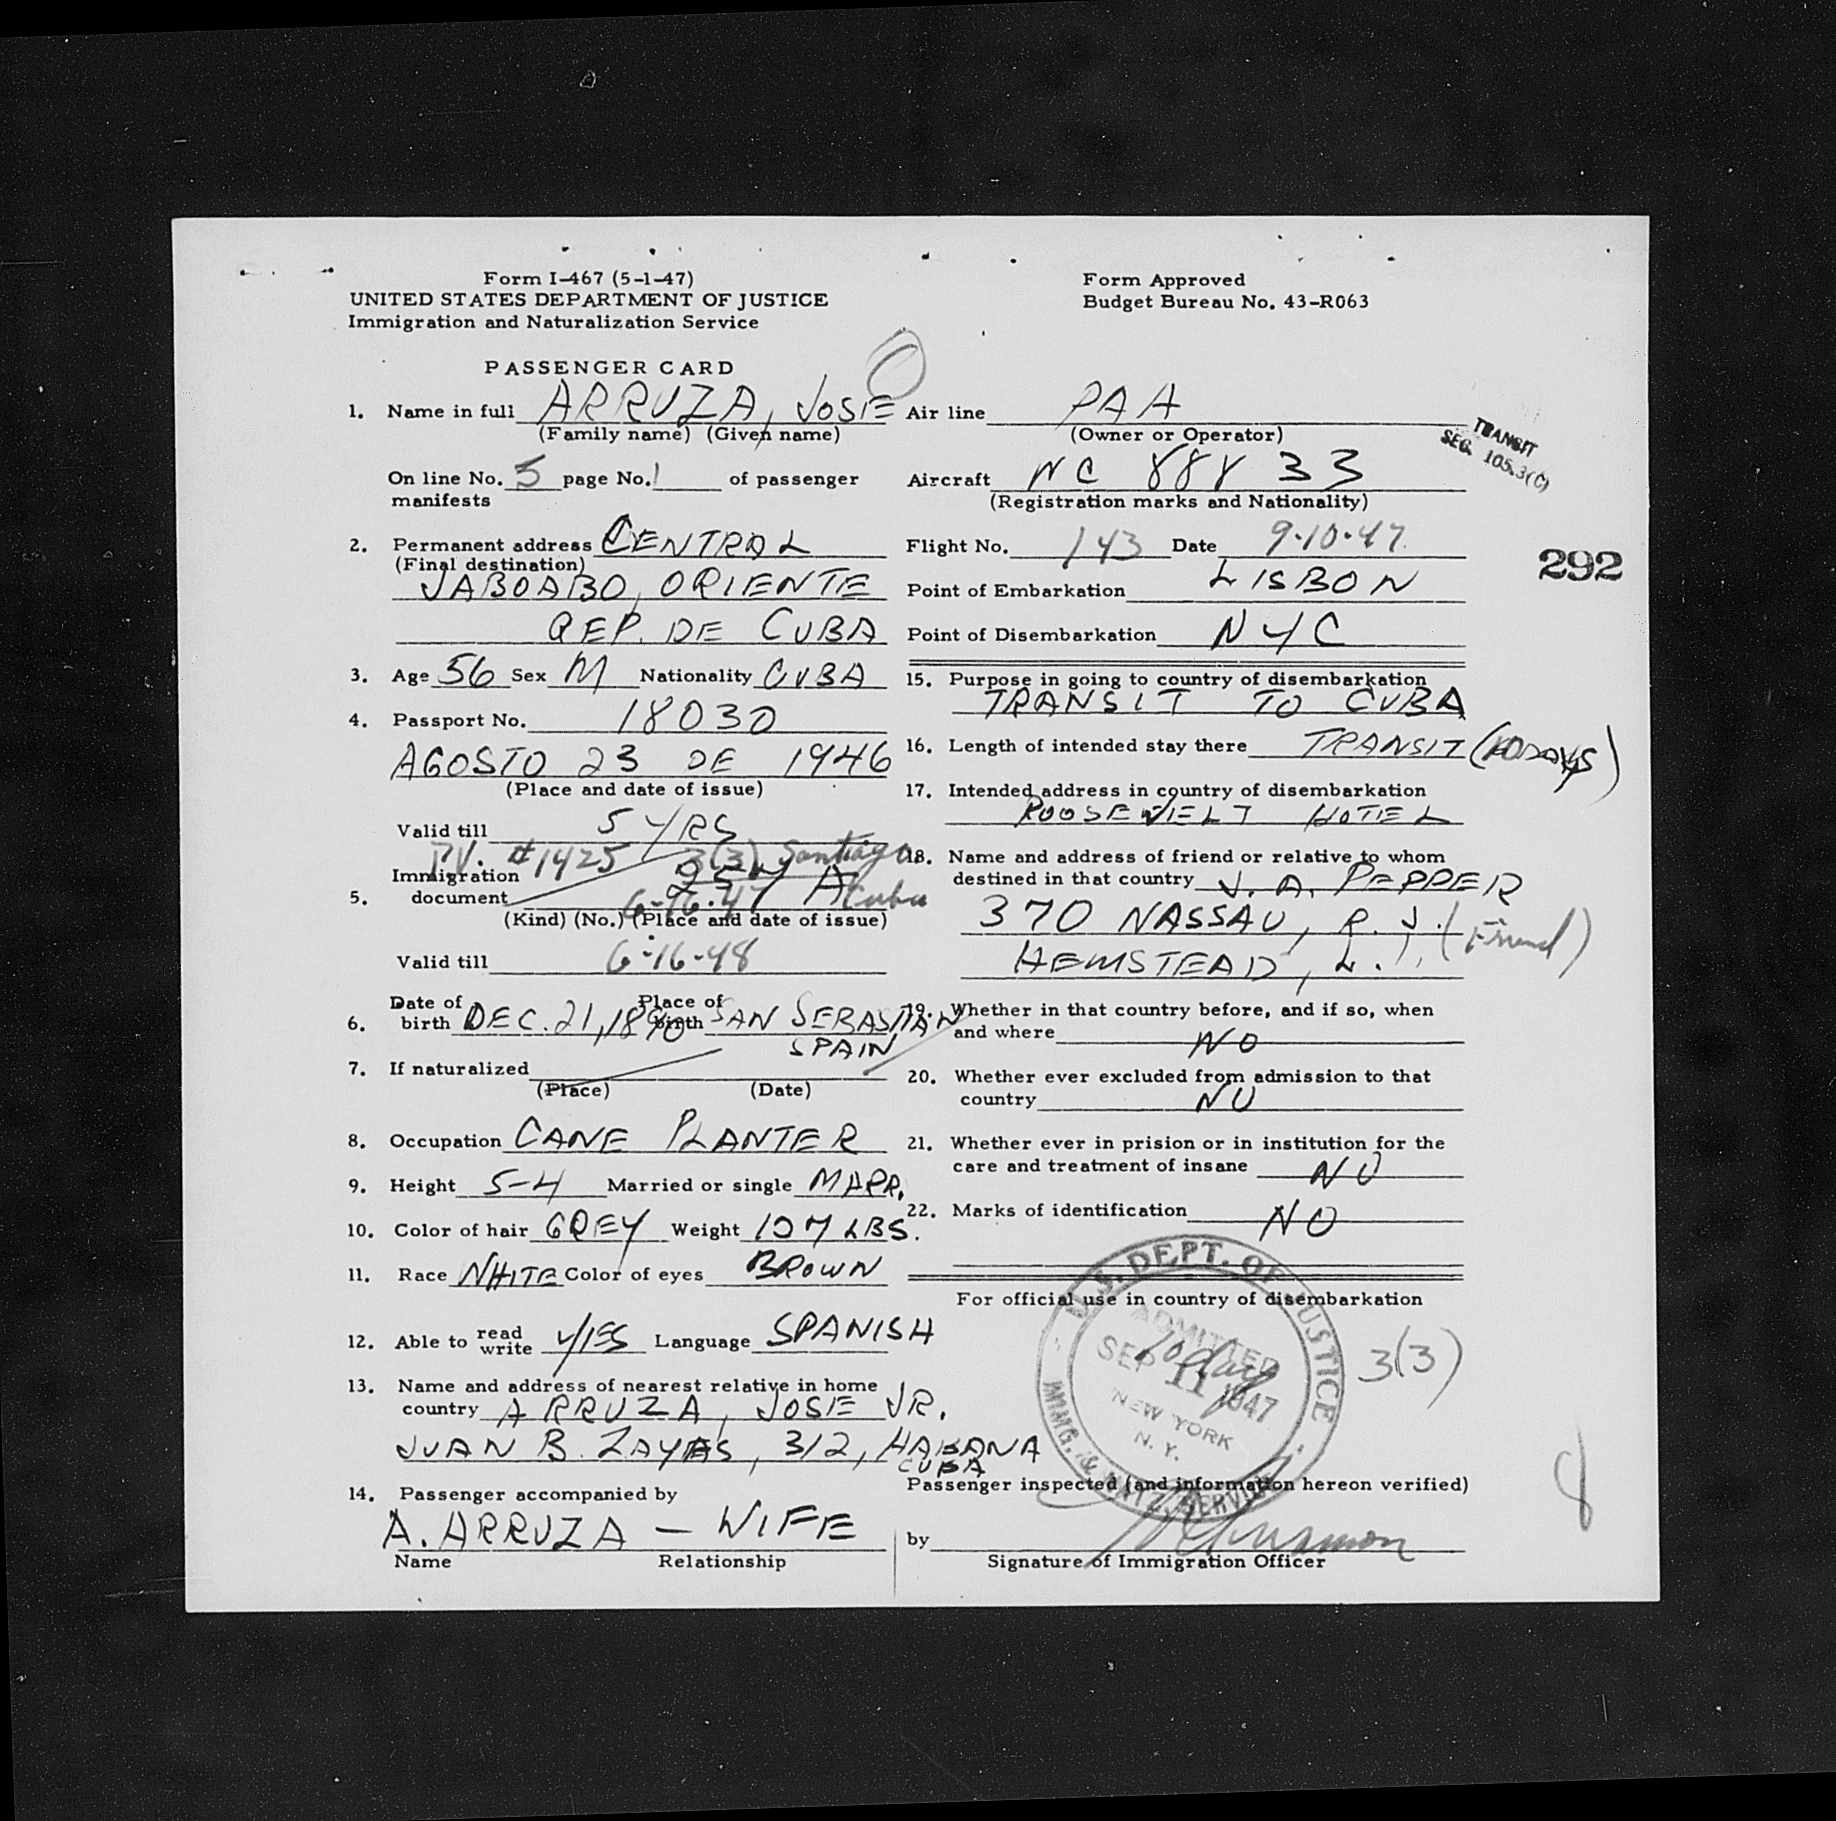 Form I-467 (5-1-47)
UNITED STATES DEPARTMENT OF JUSTICE
Immigration and Naturalization Service
Form Approved
Budget Bureau No. 43-R063
PASSENGER CARD
1. Name in full ARRUZA, JOSE
(Family name) (Given name)
On line No. 5 page No. 1 of passenger
manifests
2. Permanent address CENTRAL
(Final destination)
JABOABO, ORIENTE
REP. DE CUBA
3. Age 56 Sex M Nationality CUBA
4. Passport No. 18030
AGOSTO 23 DE 1946
(Place and date of issue)
Valid till 5 YRS
#1425 3(3) Santiago
5. Immigration
document Cuba
(Kind) (No.) (Place and date of issue)
Valid till 6-16-48
6. Date of birth DEC. 21, 1890 Place of birth SAN SEBASTIAN
SPAIN
7. If naturalized
(Place) (Date)
8. Occupation CANE PLANTER
9. Height 5-4 Married or single MARR.
10. Color of hair GREY Weight 127 LBS.
11. Race WHITE Color of eyes BROWN
12. Able to read write YES Language SPANISH
13. Name and address of nearest relative in home
country ARRUZA, JOSE JR.
JUAN B. ZAYAS, 312, HABANA
CUBA
14. Passenger accompanied by
A. ARRUZA - WIFE
Name Relationship
Air line PAA
(Owner or Operator)
TRANSIT
SEC. 105.3(C)
Aircraft NC 88833
(Registration marks and Nationality)
Flight No. 143 Date 9-10-47
292
Point of Embarkation LISBON
Point of Disembarkation NYC
15. Purpose in going to country of disembarkation
TRANSIT TO CUBA
16. Length of intended stay there TRANSIT (10 DAYS)
17. Intended address in country of disembarkation
ROOSEVELT HOTEL
18. Name and address of friend or relative to whom
destined in that country J. A. PEPPER
370 NASSAU, R. J. (Friend)
HEMSTEAD, L.I.
19. Whether in that country before, and if so, when
and where NO
20. Whether ever excluded from admission to that
country NO
21. Whether ever in prision or in institution for the
care and treatment of insane NO
22. Marks of identification NO
For official use in country of disembarkation
U.S. DEPT. OF JUSTICE
IMMIG. & NATZ. SERVICE
ADMITTED
10 days
SEP 11 1947
NEW YORK
N. Y.
3(3)
8
Passenger inspected (and information hereon verified)
by
Signature of Immigration Officer